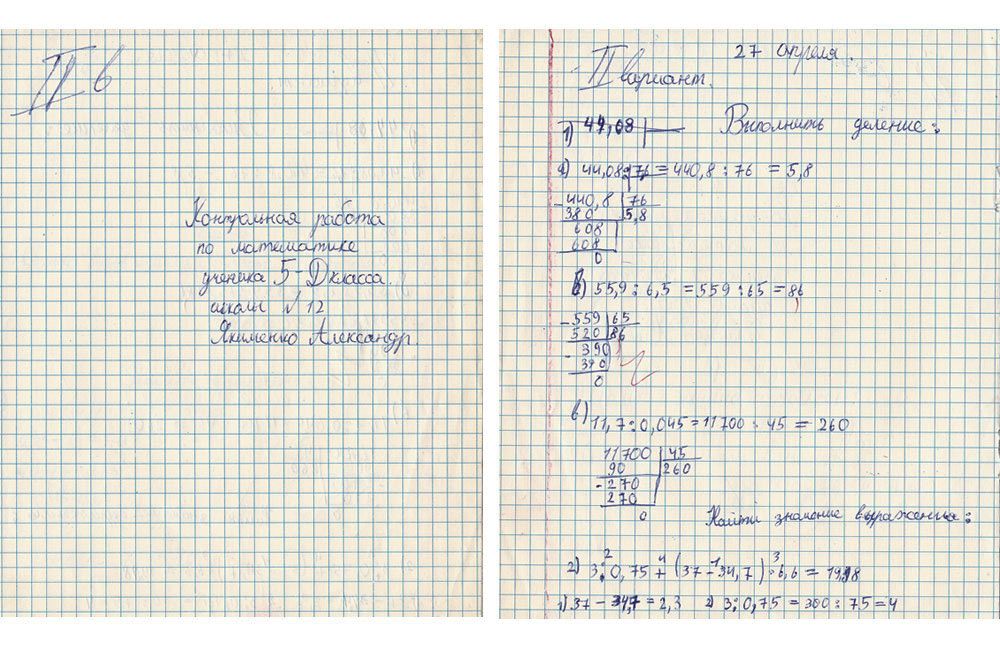 II в
Контрольная работа
по математике
ученика 5-Д класса
школы № 12
Якименко Александр.
27 апреля.
II вариант.
1) 44,08 Выполнить деление:
а) 44,08 : 7,6 = 440,8 : 76 = 5,8
440,8 | 76
380 | 5,8
608
608
0
б) 55,9 : 6,5 = 559 : 65 = 86
559 | 65
520 | 86
390
390
0
в) 11,7 : 0,045 = 11700 : 45 = 260
11700 | 45
90 | 260
270
270
0
Найти значение выражения:
2) 3 : 0,75 + (37 - 34,7) · 6,6 = 19,18
1) 37 - 34,7 = 2,3 2) 3 : 0,75 = 300 : 75 = 4